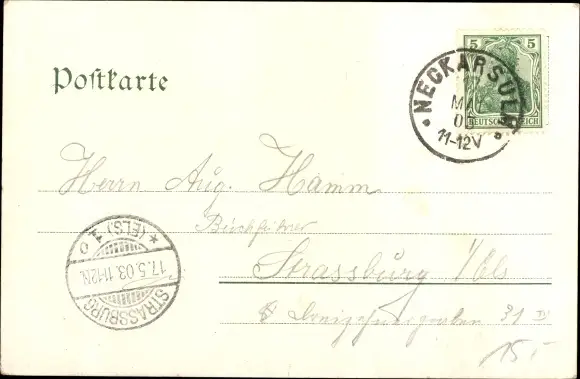 Postkarte
5 5
DEUTSCHES REICH
NECKARSULM
MA
03
11-12V
Herrn Aug. Hamm
Buchführer
Strassburg i/Els
31 II
15.-
STRASSBURG
17.5.03.
* (ELS.) 1 c